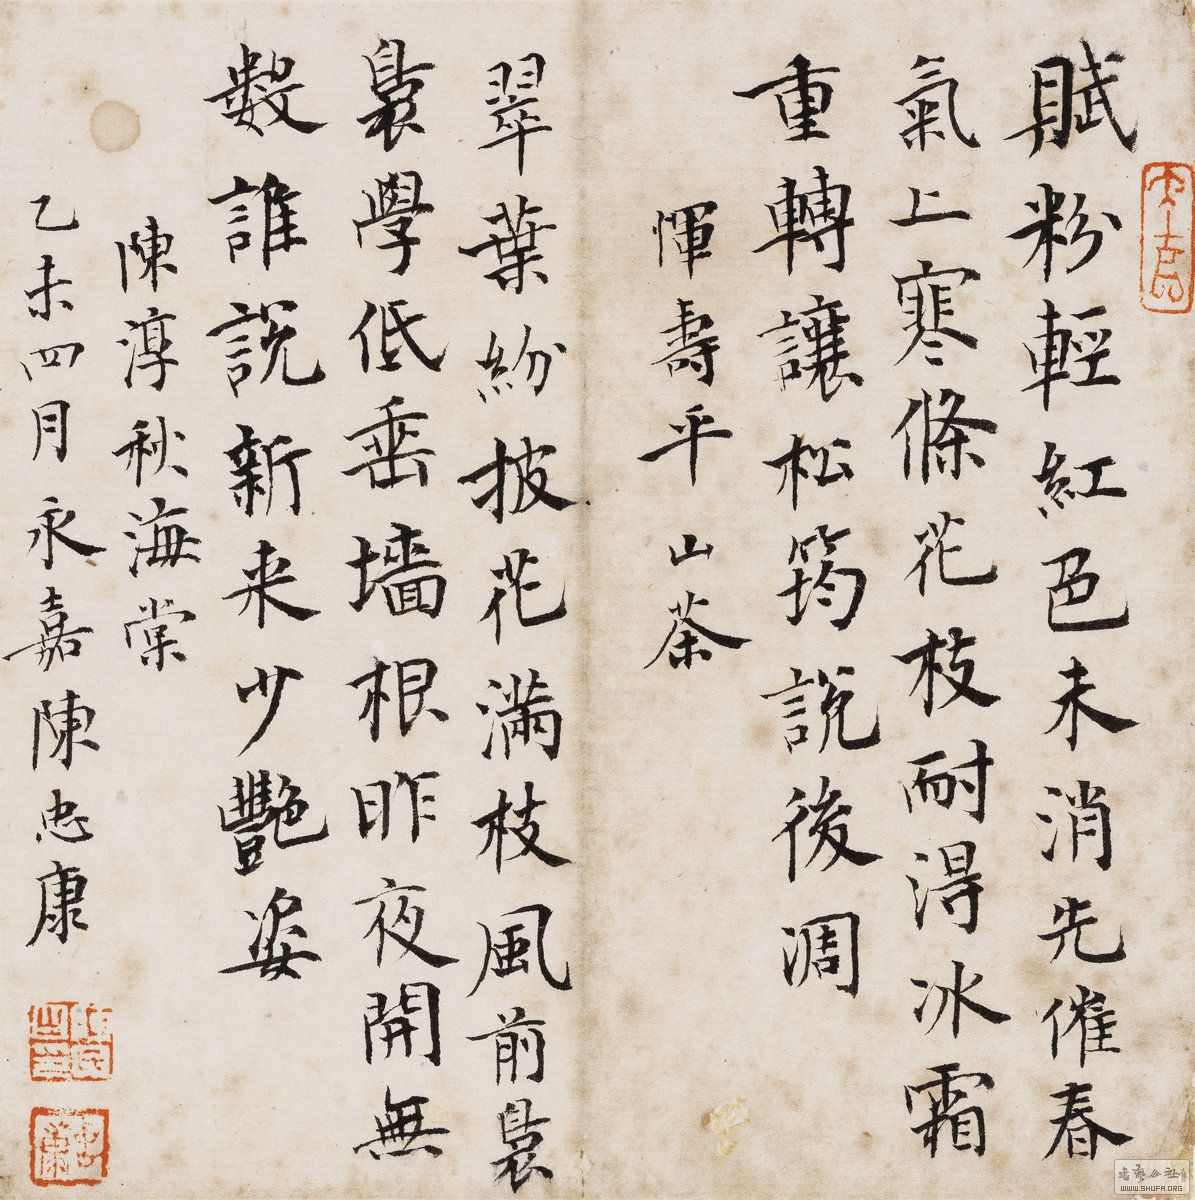 賦粉輕紅色未消先催春
氣上寒條花枝耐得冰霜
重轉讓松筠說後凋
惲壽平 山茶
翠葉紛披花滿枝風前裊
裊學低垂墻根昨夜開無
數誰說新来少艷姿
陳淳秋海棠
乙未四月永嘉陳忠康
WWW.SHUFA.ORG